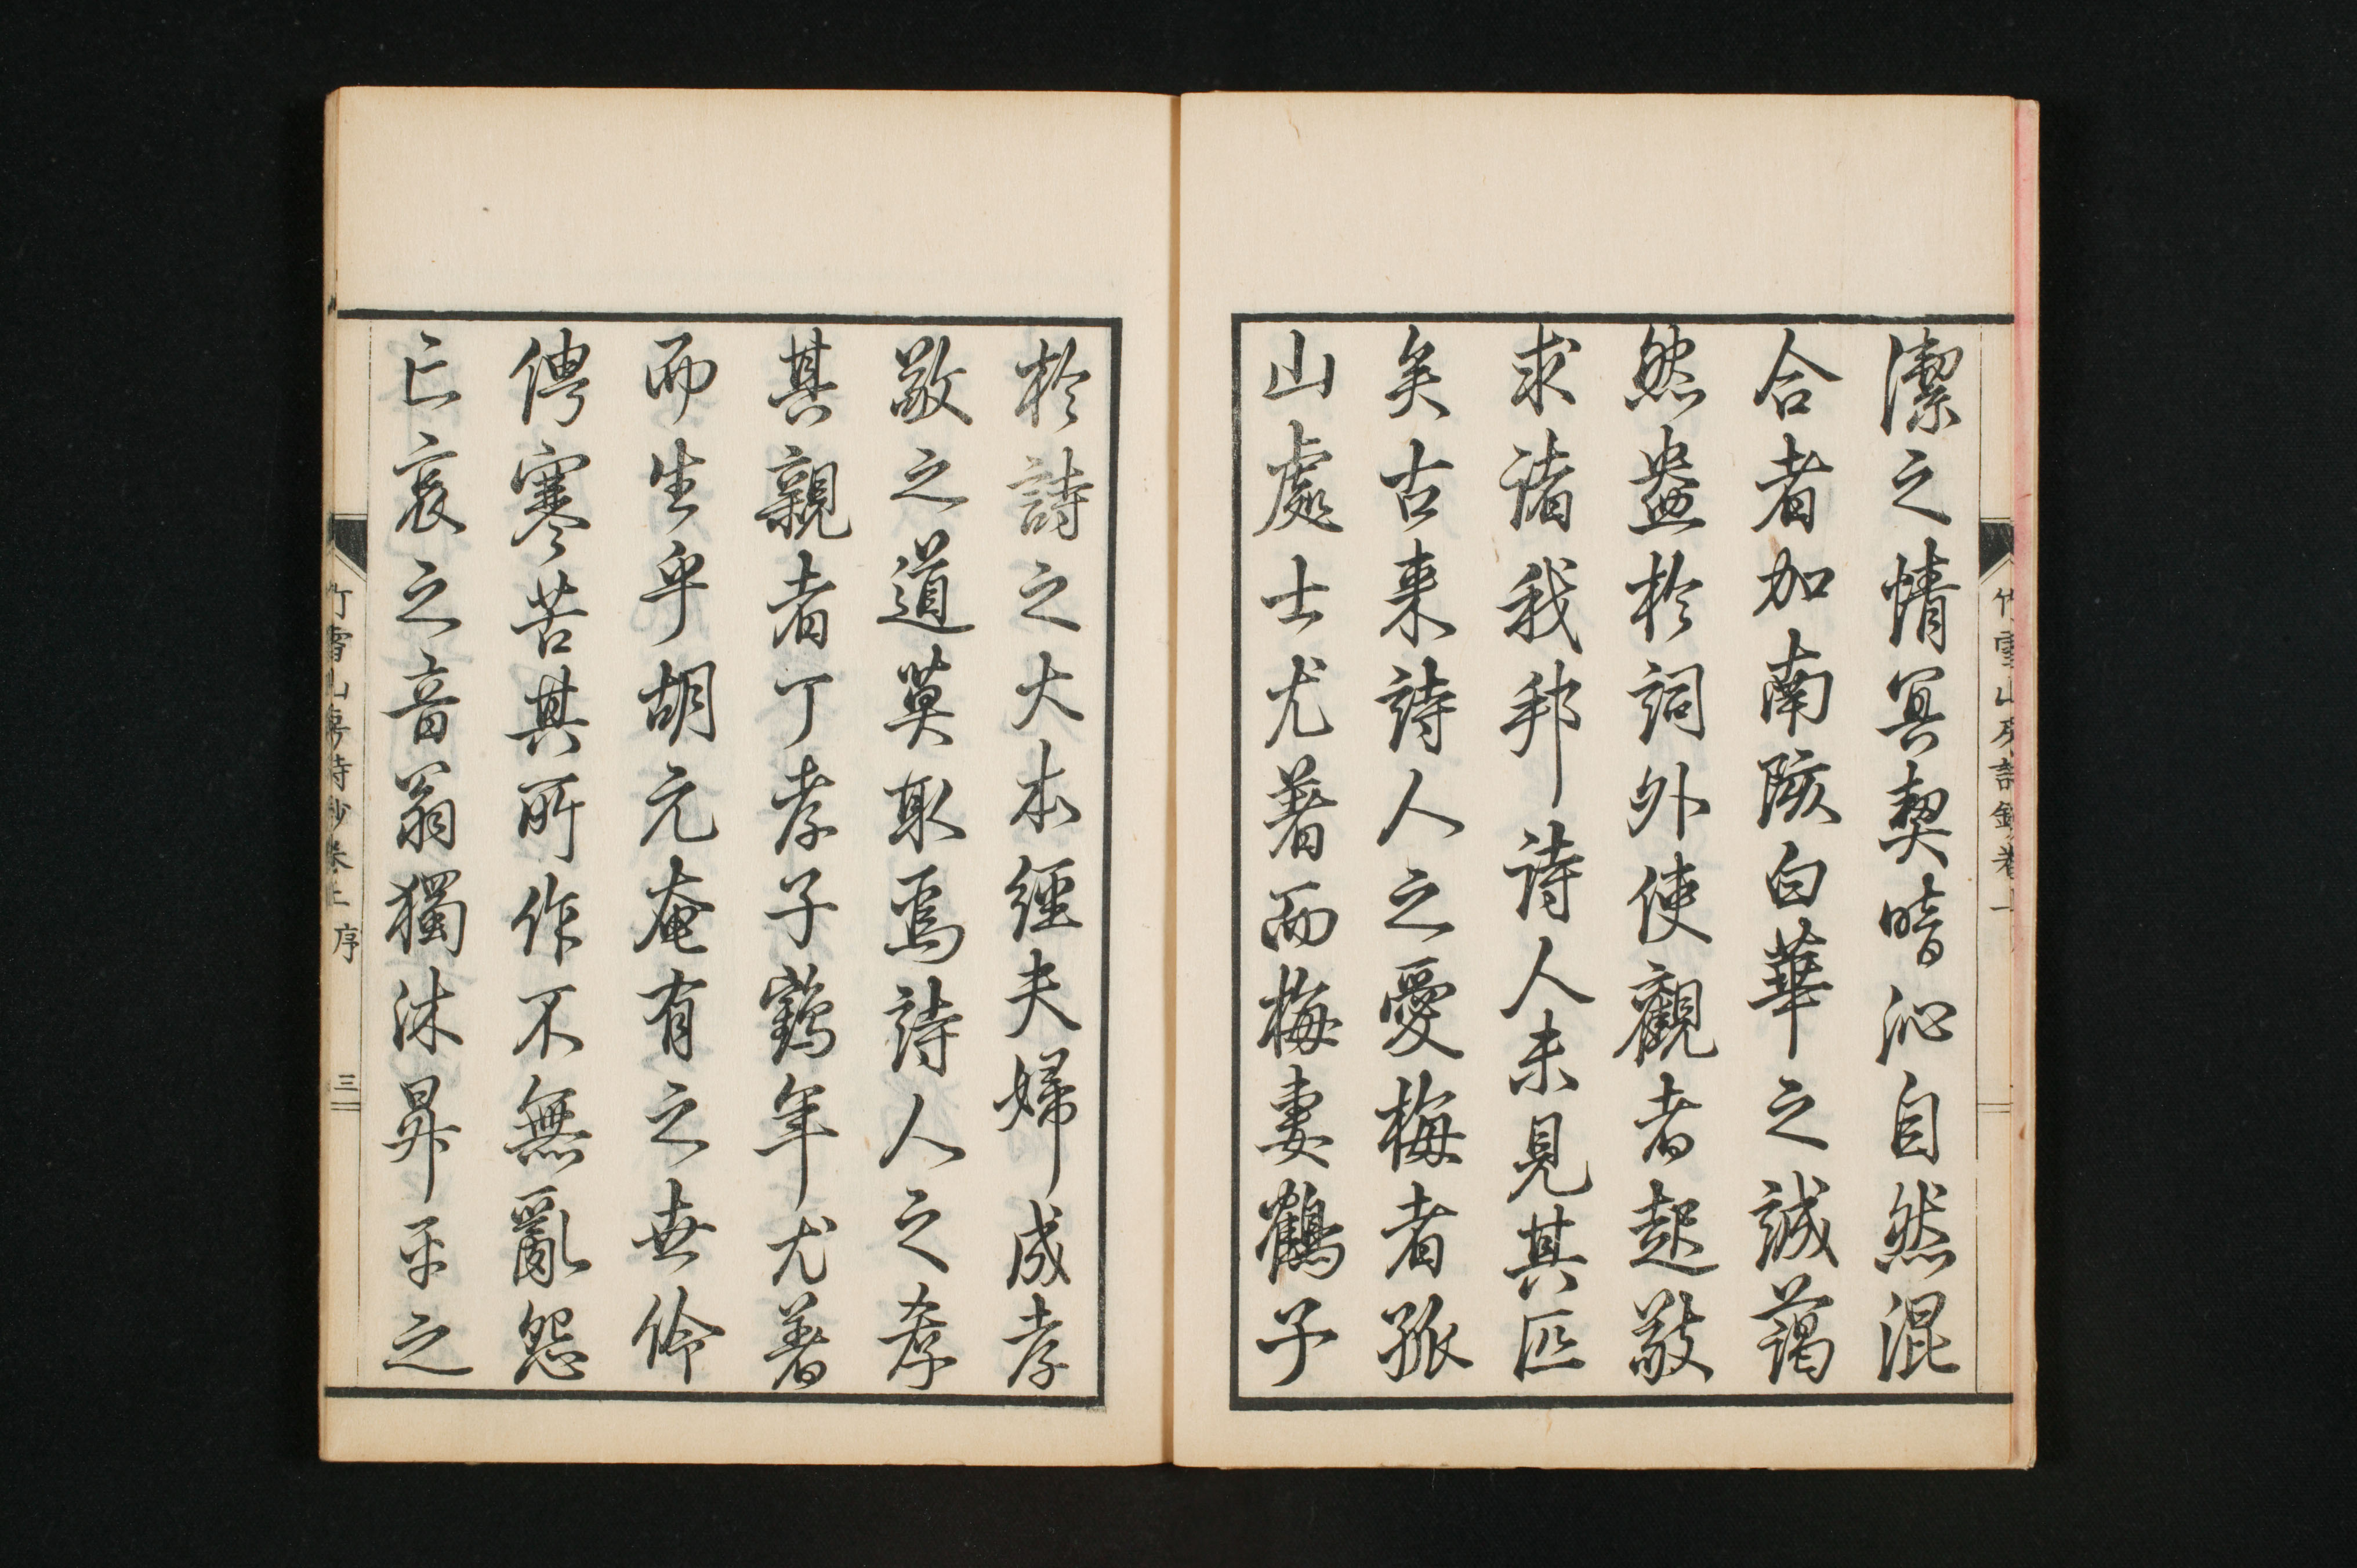 潔之情冥契暗沁自然混
合者加南陔白華之誠藹
然盎於詞外使觀者起敬
求諸我邦詩人未見其匹
矣古来詩人之愛梅者孤
山處士尤著而梅妻鶴子
於詩之大本經夫婦成孝
敬之道莫取焉詩人之孝
其親者丁孝子鶴年尤著
而生乎胡元奄有之世伶
俜寒苦其所作不無亂怨
亡哀之音翁獨沐昇平之
竹雪山房詩鈔卷上 序 三